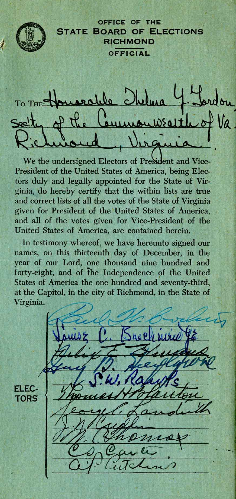 OFFICE OF THE
STATE BOARD OF ELECTIONS
RICHMOND
OFFICIAL
To THE Honorable Thelma Y. Gordon
Sec'ty of the Commonwealth of Va.
Richmond, Virginia
We the undersigned Electors of President and Vice-
President of the United States of America, being Elec-
tors duly and legally appointed for the State of Vir-
ginia, do hereby certify that the within lists are true
and correct lists of all the votes of the State of Virginia
given for President of the United States of America,
and all of the votes given for Vice-President of the
United States of America, are contained herein.
In testimony whereof, we have hereunto signed our
names, on this thirteenth day of December, in the
year of our Lord, one thousand nine hundred and
forty-eight, and of the Independence of the United
States of America the one hundred and seventy-third,
at the Capitol, in the city of Richmond, in the State of
Virginia.
C.
S. W. Rawls
ELEC-
TORS
Thomas H.
George C.
Thomas